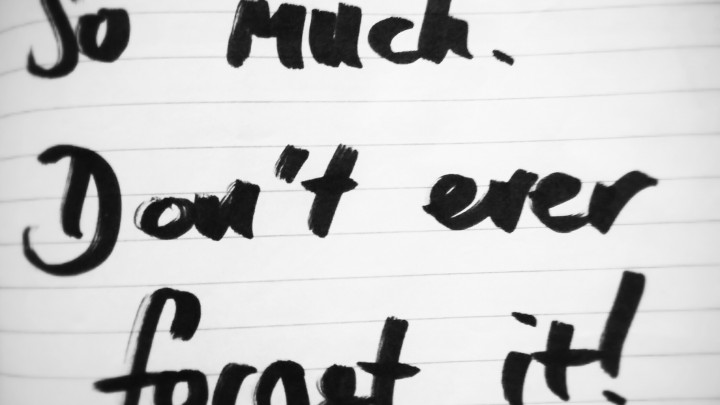 So Much.
Don't ever
forget it!